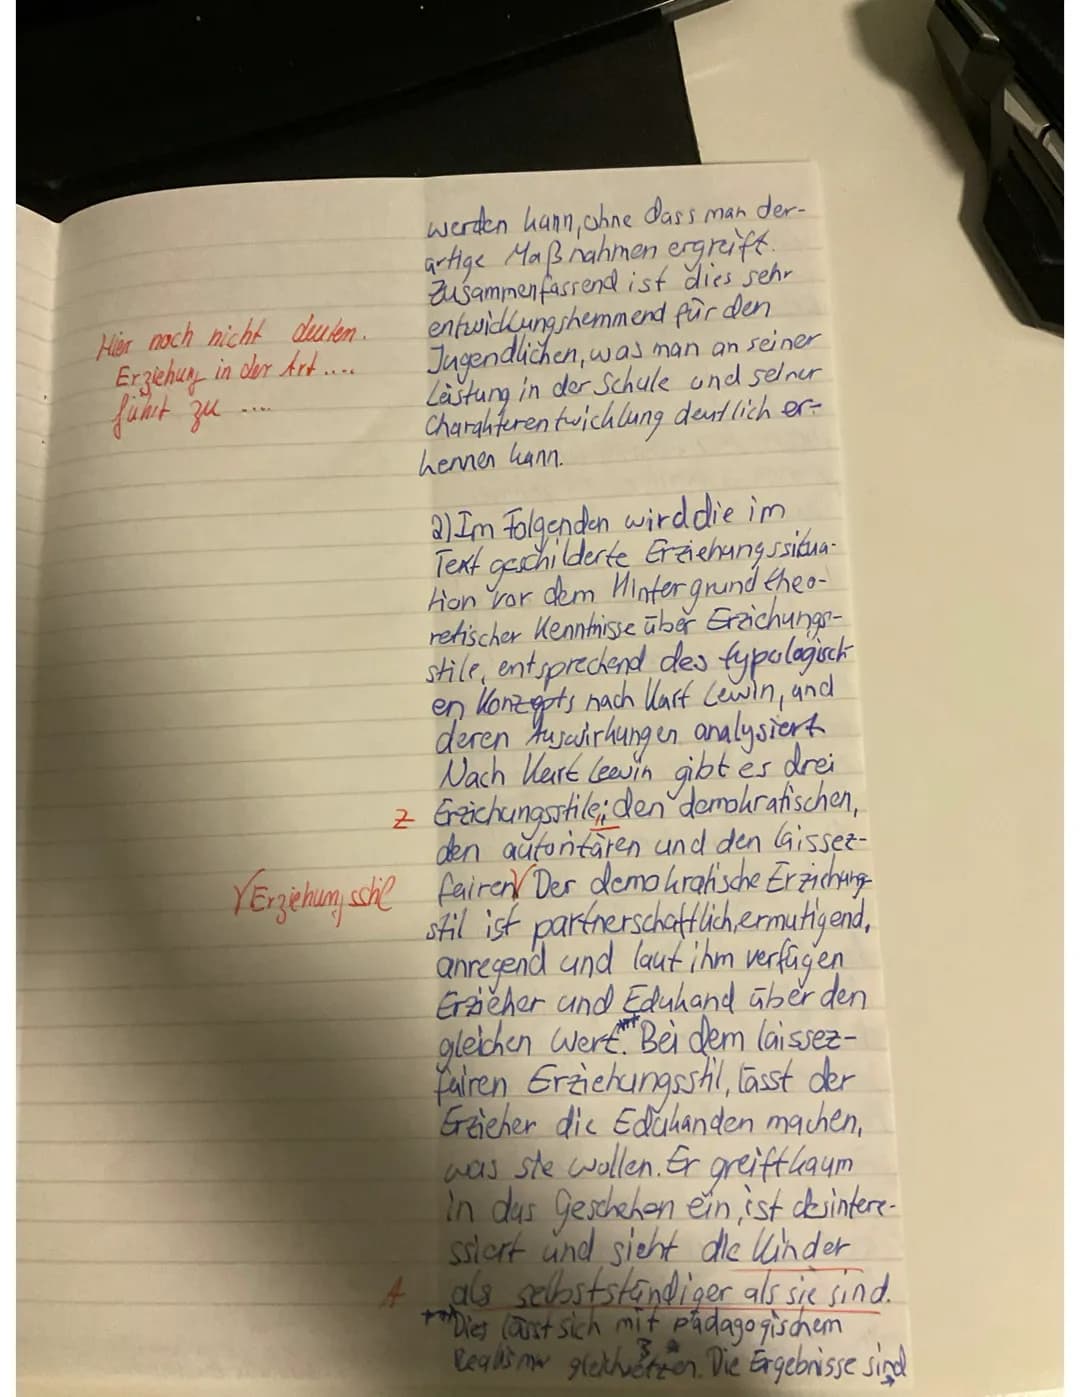 werden kann, ohne dass man der-
artige Maßnahmen ergreift.
Zusammenfassend ist dies sehr
entwicklungshemmend für den
Jugendlichen, was man an seiner
Leistung in der Schule und seiner
Charakterentwicklung deutlich er-
kennen kann.
Hier noch nicht deuten.
Erziehung in der Art ....
führt zu ....
2) Im Folgenden wird die im
Text geschilderte Erziehungssitua-
tion vor dem Hintergrund theo-
retischer Kenntnisse über Erziehungs-
stile, entsprechend des typologisch-
en Konzepts nach Kurt Lewin, und
deren Auswirkungen analysiert.
Nach Kurt Lewin gibt es drei
Z Erziehungsstile; den demokratischen,
den autoritären und den laissez-
Erziehungsstil fairen. Der demokratische Erziehung-
stil ist partnerschaftlich, ermutigend,
anregend und laut ihm verfügen
Erzieher und Edukand über den
gleichen Wert.*** Bei dem laissez-
fairen Erziehungsstil, lässt der
Erzieher die Edukanden machen,
was sie wollen. Er greift kaum
in das Geschehen ein, ist desintere-
ssiert und sieht die Kinder
A als selbstständiger als sie sind.
*** Dies lässt sich mit pädagogischem
Realismus gleichsetzen. Die Ergebnisse sind